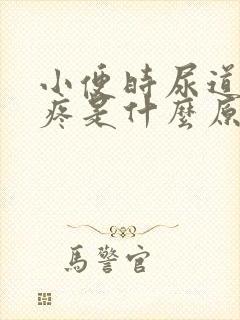 小便時尿道
疼是什麼原
馬警官